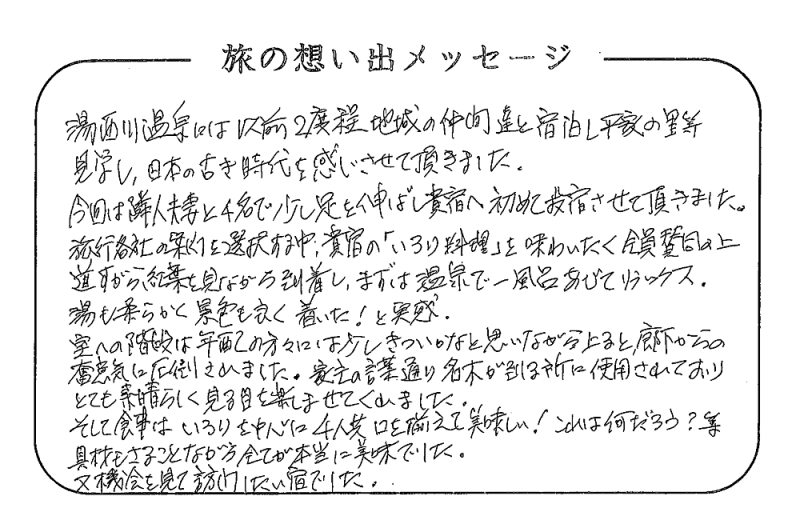 旅の想い出メッセージ
湯西川温泉には以前2度程地域の仲間達と宿泊し平家の里等
見学し、日本の古き時代を感じさせて頂きました。
今回は隣人夫妻と4名で少し足を伸ばし貴宿へ初めて投宿させて頂きました。
旅行各社の案内を選択する中、貴宿の「いろり料理」を味わいたく全員賛同の上
道すがら紅葉を見ながら到着し、まずは温泉で一風呂あびてリラックス。
湯も柔らかく景色も良く着いた!と実感。
室への階段は年配の方々には少しきついかなと思いながら上ると、廊下からの
雰意気に圧倒されました。家主の言葉通り名木が到る所に使用されており
とても素晴らしく見る目を楽しませてくれました。
そして食事はいろりを中心に4人共口を揃えて美味しい!これは何だろう?等
具材もさることながら全てが本当に美味でした。
又機会を見て訪問したい宿でした。